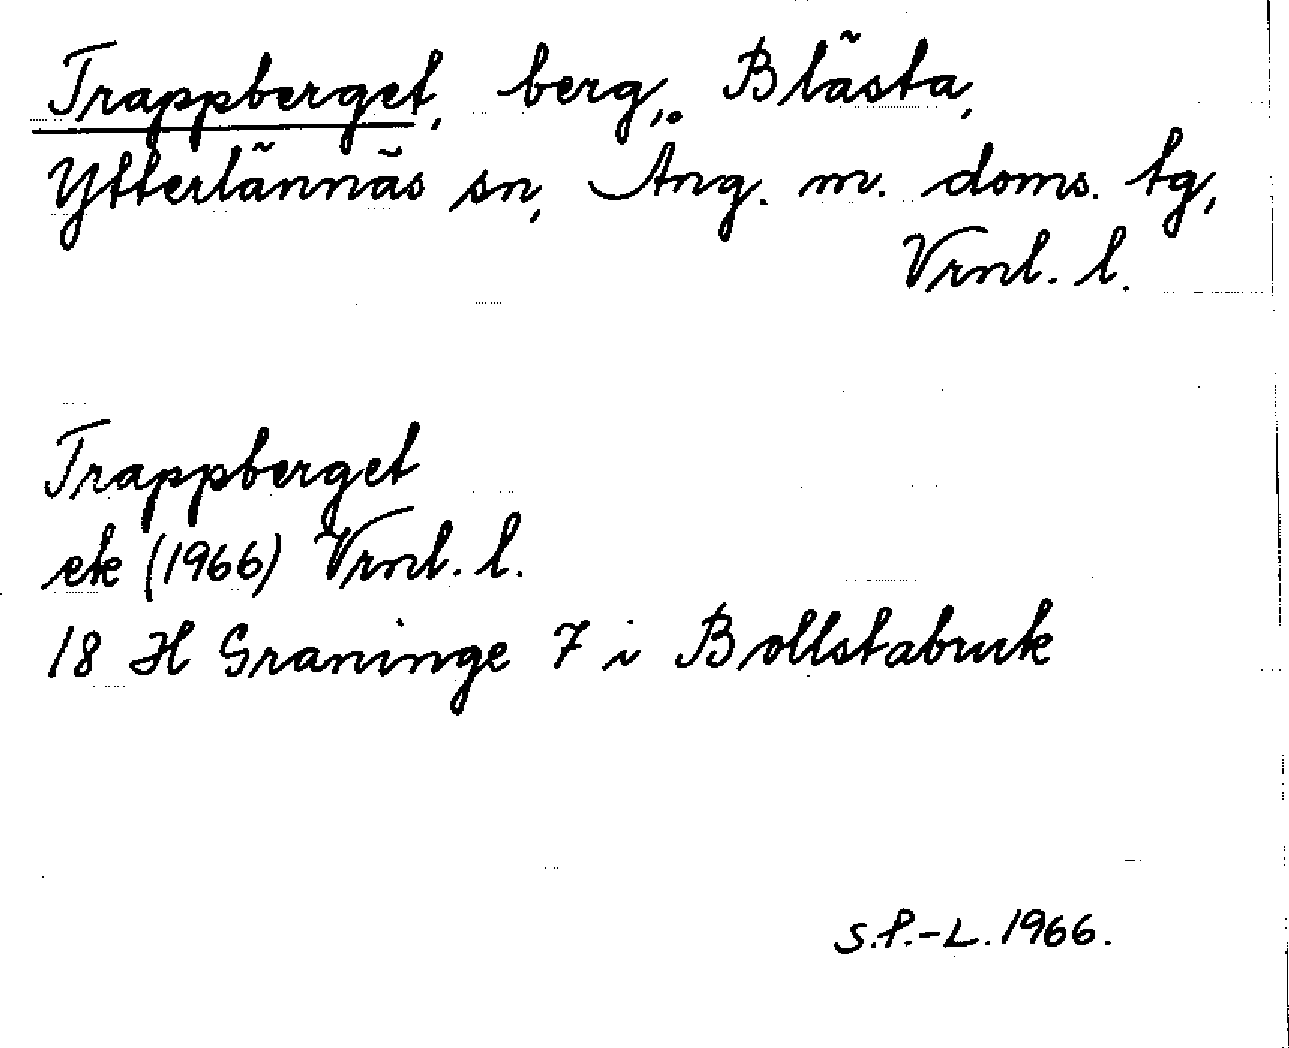 Trappberget, berg, Blästa,
Ytterlännäs sn, Ång. m. doms. tg,
Vrnl. l.
Trappberget
ek (1966) Vrnl. l.
18 H Graninge 7 i Bollstabruk
S.P.-L. 1966.